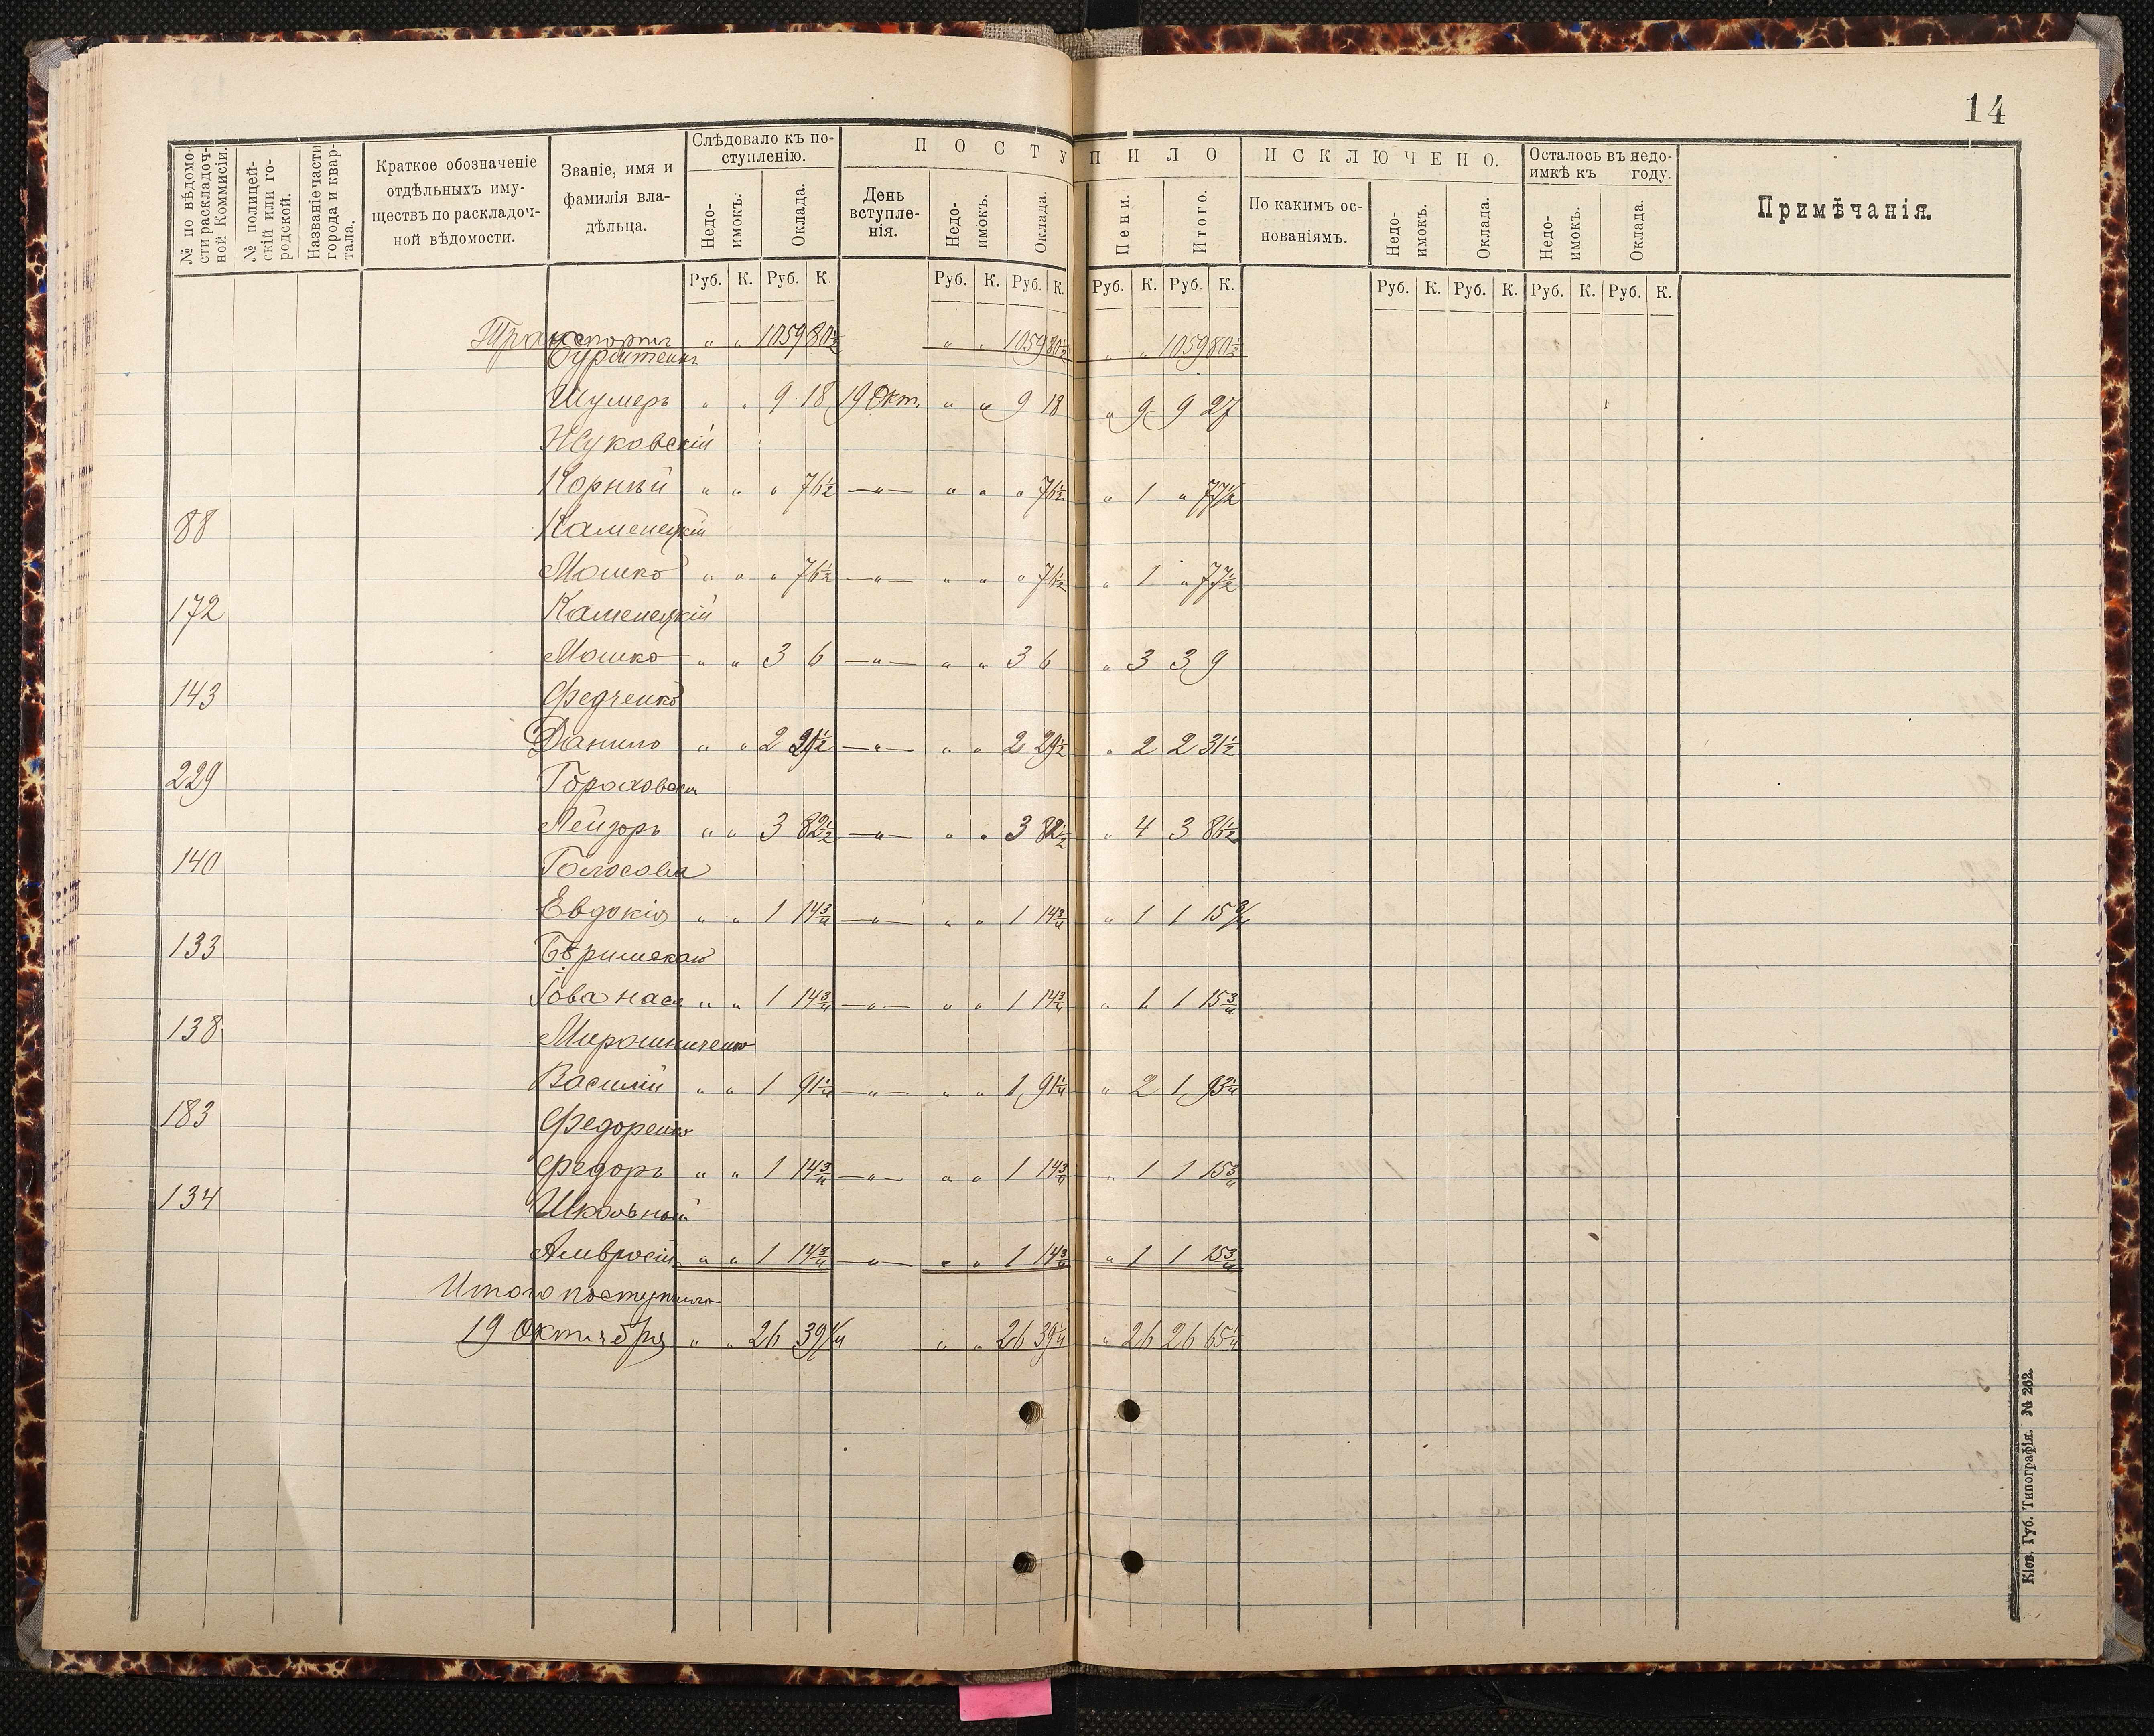 14
№ по вѣдомости раскладочной Коммисіи.
№ полицейскій или городской.
Названіе части города и квартала.
Краткое обозначеніе отдѣльныхъ имуществъ по раскладочной вѣдомости.
Званіе, имя и фамилія владѣльца.
Слѣдовало къ поступленію.
Недоимокъ. Оклада.
ПОСТУПИЛО
День вступленія.
Недоимокъ. Оклада. Пени. Итого.
ИСКЛЮЧЕНО.
По какимъ основаніямъ.
Недоимокъ. Оклада.
Осталось въ недоимкѣ къ году.
Недоимокъ. Оклада.
Примѣчанія.
Руб. К. Руб. К. Руб. К. Руб. К. Руб. К. Руб. К. Руб. К. Руб. К. Руб. К. Руб. К.
Транспортъ " " 1059 80½ " " 1059 80½ " " 1059 80½
Шумеръ " " 9 18 19 Окт. " " 9 18 " 9 9 27
Жуковскій
Корнѣй " " " 76½ —"— " " " 76½ " 1 " 77½
88 Каменецкій
Мошко " " " 76½ —"— " " " 76½ " 1 " 77½
172 Каменецкій
Мошко " " 3 6 —"— " " 3 6 " 3 3 9
143 Федченко
Данило " " 2 29½ —"— " " 2 29½ " 2 2 31½
229
Лейзоръ " " 3 82½ —"— " " 3 82½ " 4 3 86½
140 Голосова
Евдокія " " 1 14¾ —"— " " 1 14¾ " 1 1 15¾
133
" " 1 14¾ —"— " " 1 14¾ " 1 1 15¾
138 Мирошниченко
Василій " " 1 91¼ —"— " " 1 91¼ " 2 1 93¼
183 Федоренко
Федоръ " " 1 14¾ —"— " " 1 14¾ " 1 1 15¾
134 Школьный
Амвросій " " 1 14¾ —"— " " 1 14¾ " 1 1 15¾
Итого поступило
19 Октября " " 26 39¼ " " 26 39¼ " 26 26 65¼
Кіев. Губ. Типографія. № 262.